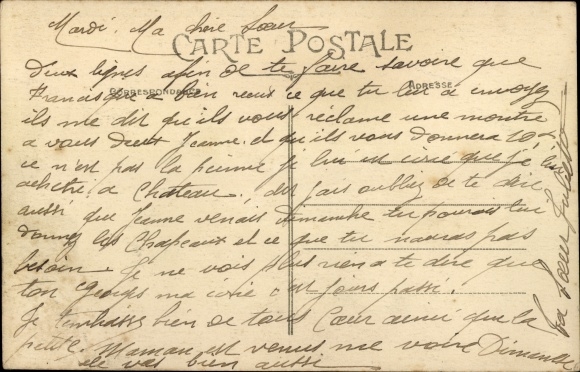 Mardi. Ma chère Soeur
CARTE POSTALE
CORRESPONDANCE
ADRESSE
Deux lignes afin de te faire savoire que
Francisque a bien recus ce que tu lui a envoyez
ils me dit qu'ils vous réclame une montre
a vous deux Jeanne. et qu'ils vous donnera 10f
ce n'est pas la peinne je lui est écrie que je lui
achète a Chateau, est
aussi que Jeanne venais Dimanche tu pourais lui
donnez les Chapeaux et ce que tu nauras pas
besoin. Je ne vois plus rien a te dire que
ton Georges ma écrie c'est jours passé.
Je t'embrasse bien de tous Cœur ainsi que la
petite. Maman est venus me voire Dimanche
elle vas bien aussi
ta Soeur Juliette